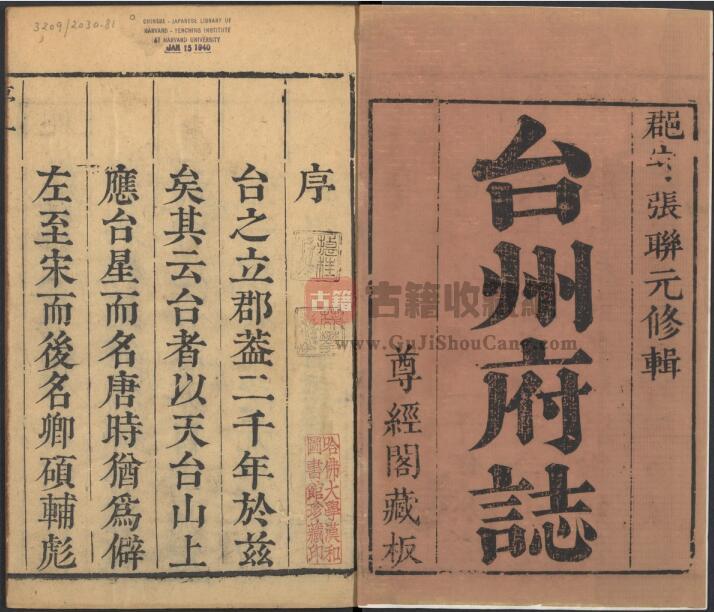 郡守張聯元修輯
台州府誌
尊經閣藏板
3209/2030.81
CHINESE - JAPANESE LIBRARY OF
HARVARD - YENCHING INSTITUTE
AT HARVARD UNIVERSITY
JAN 15 1940
序
台之立郡葢二千年於兹
矣其云台者以天台山上
應台星而名唐時猶爲僻
左至宋而後名卿碩輔彪
哈佛大學漢和
圖書館珍藏印
古籍
古籍收藏
www.GuJiShouCang.com